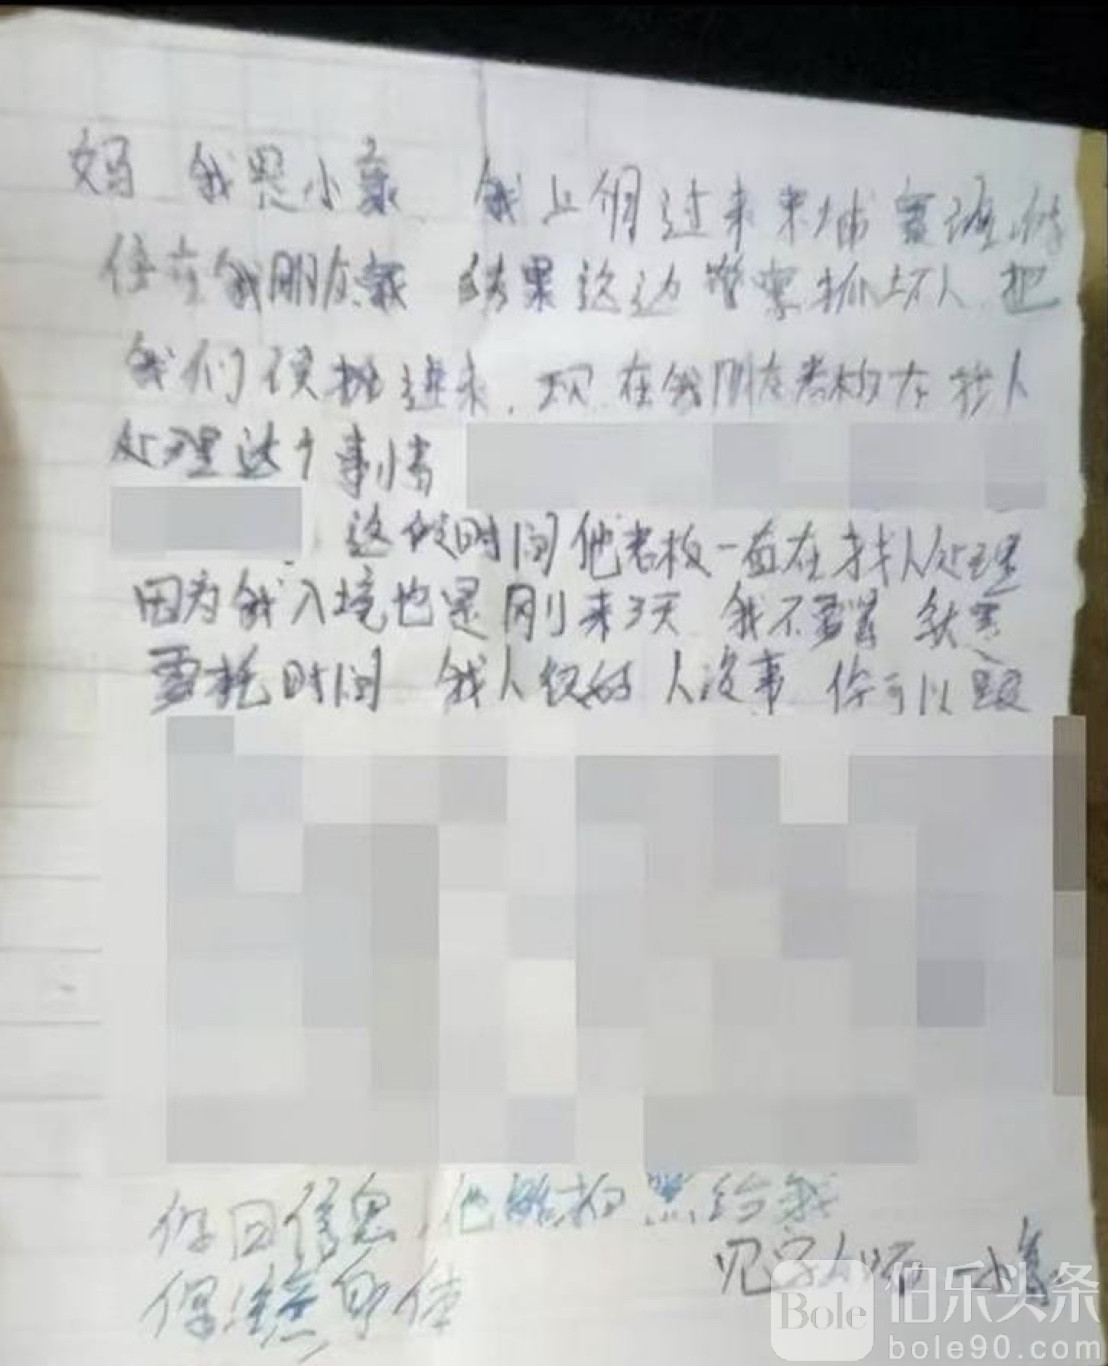 妈 我是小豪 我上个月过来柬埔寨
住在我朋友家 结果这边警察抓坏人 把
我们 进来,现在我朋友老板在找人
处理这个事情
这段时间他老板一直在找人处理
因为我入境也是刚来3天 我不要紧 就是
要耗时间 我人很好 人没事 你可以跟
你回信息,他能拍照给我
保重身体
见字如面 小豪
Bole 伯乐头条
bole90.com